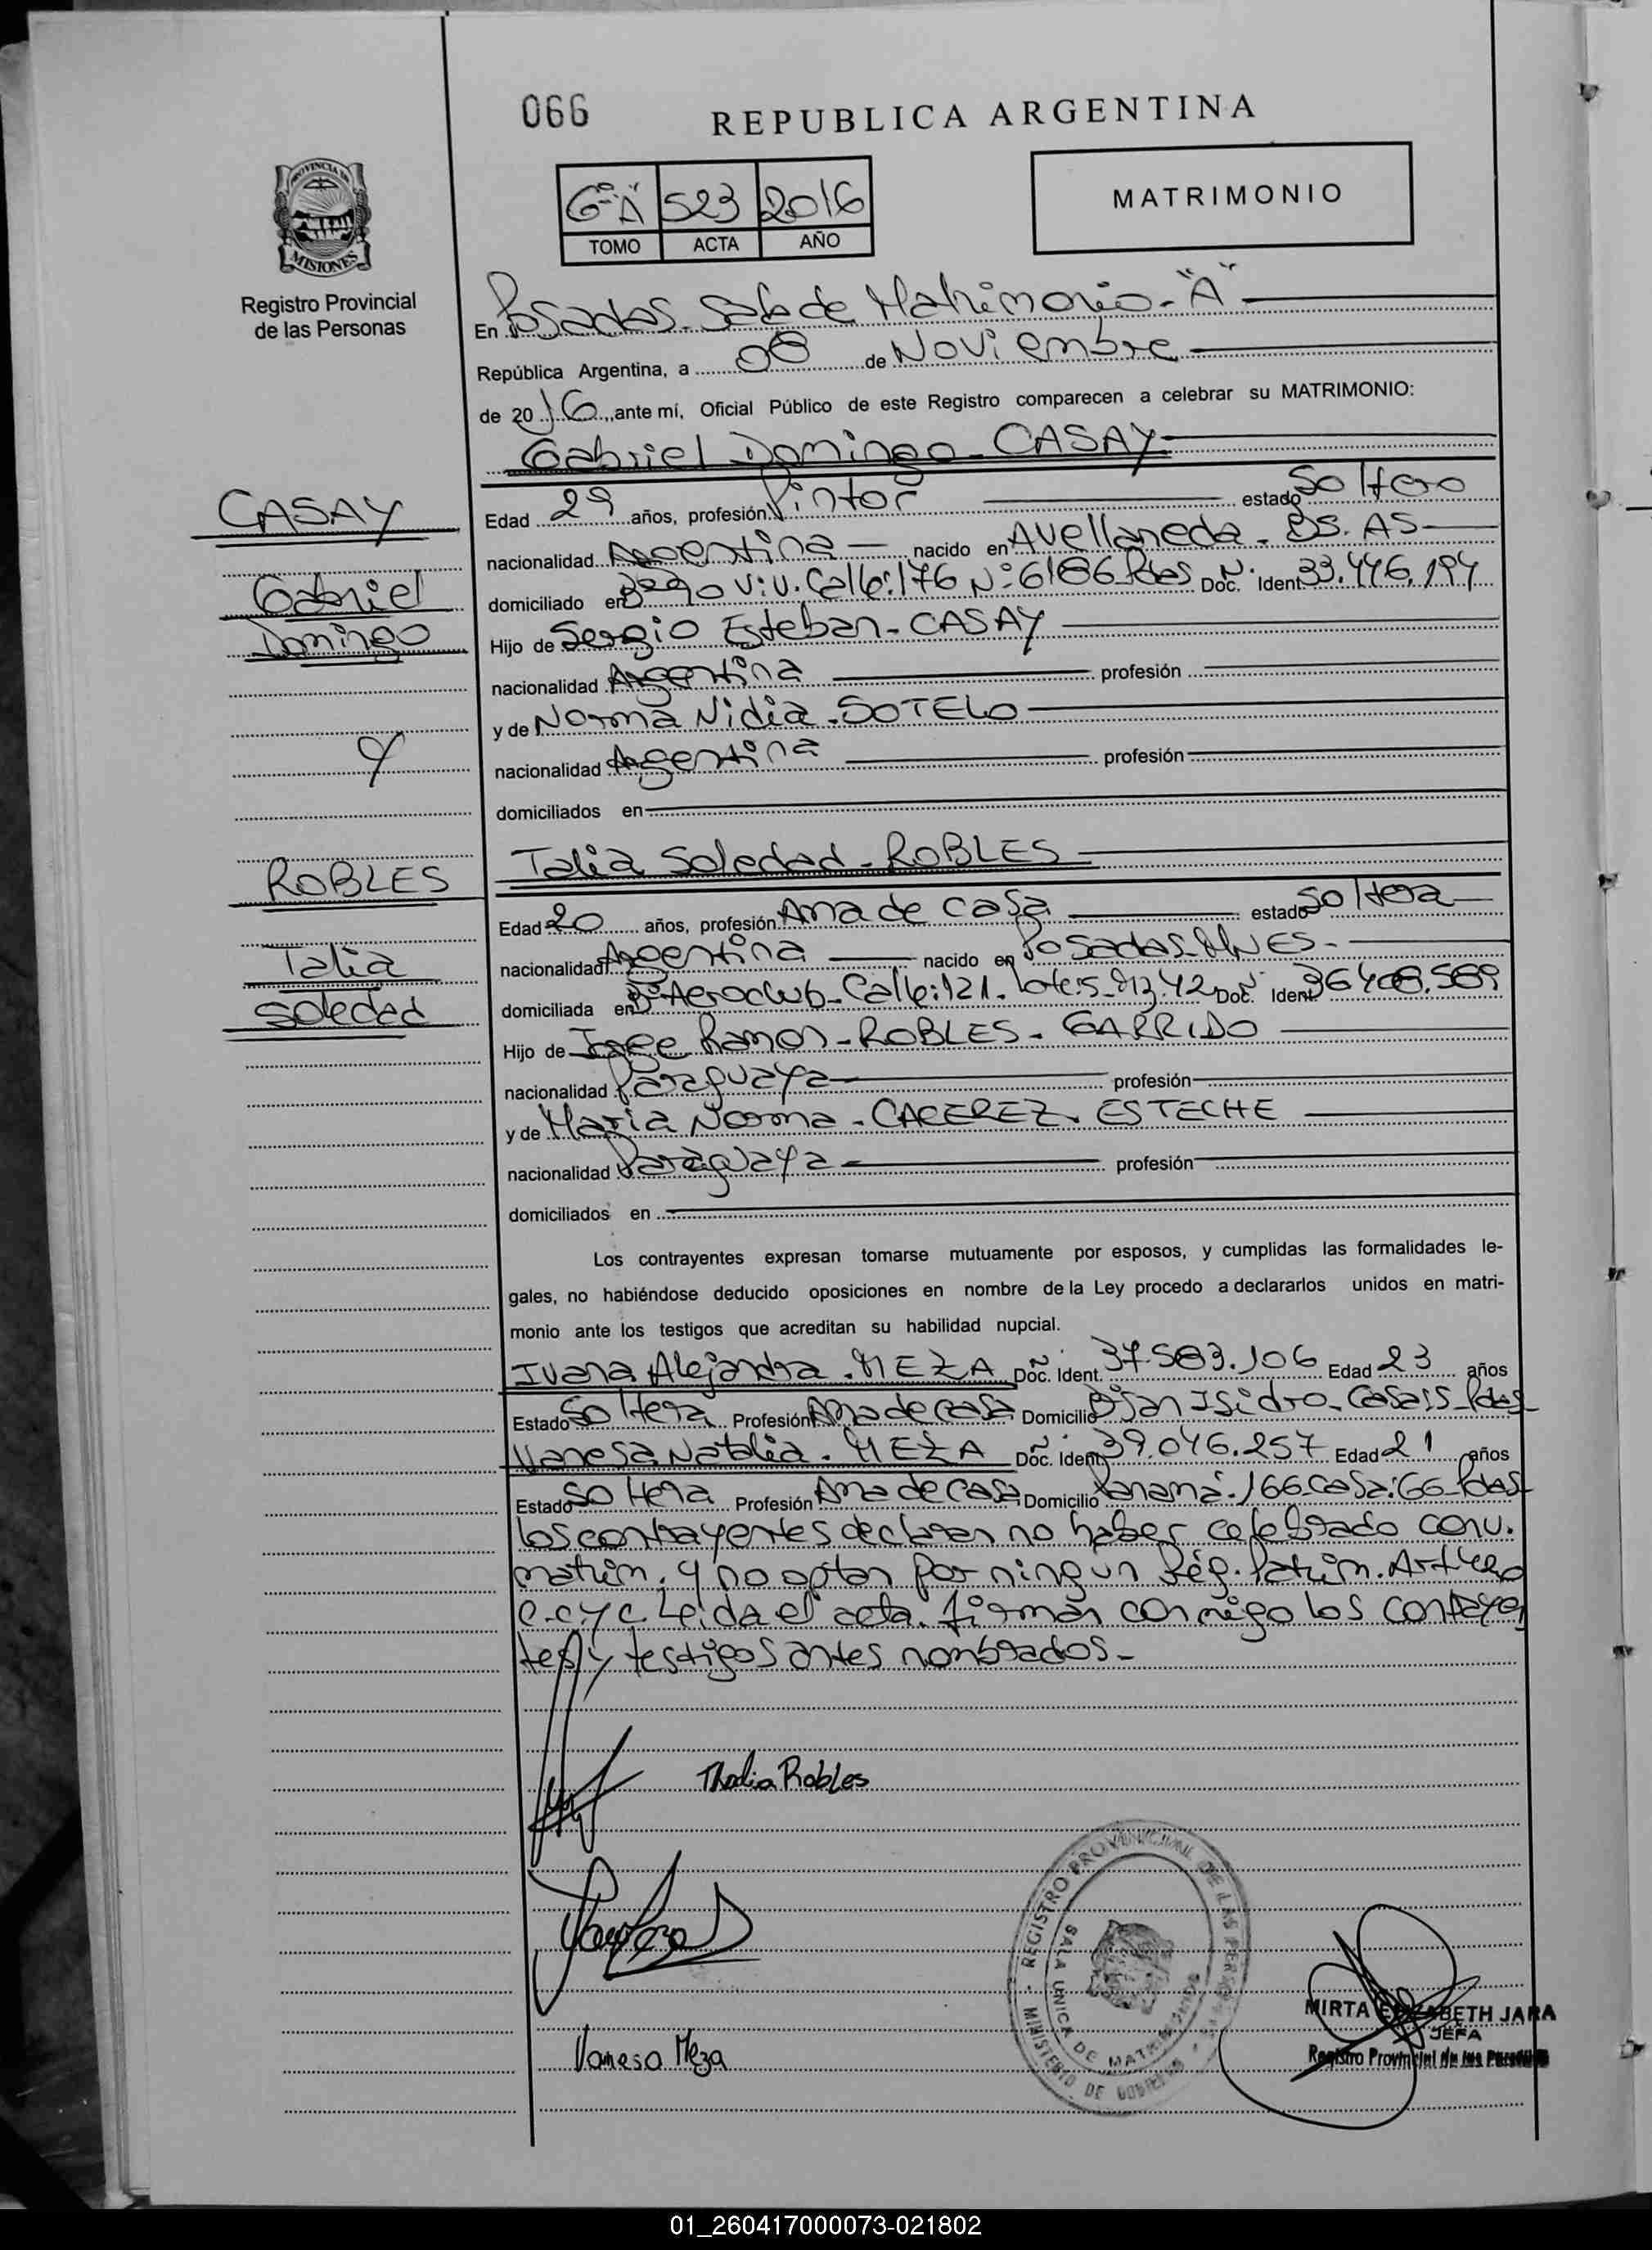 066
REPUBLICA ARGENTINA
PROVINCIA DE
MISIONES
Registro Provincial
de las Personas
6º "A" 523 2016
TOMO ACTA AÑO
MATRIMONIO
En Posadas - Sala de Matrimonio - "A"
República Argentina, a 08 de Noviembre
de 2016, ante mí, Oficial Público de este Registro comparecen a celebrar su MATRIMONIO:
Gabriel Domingo - CASAY
CASAY
Gabriel
Domingo
y
ROBLES
Talia
Soledad
Edad 29 años, profesión Pintor estado Soltero
nacionalidad Argentina nacido en Avellaneda - BS. AS
domiciliado en Bº 90 Viv. Calle: 176 Nº 6186 Pdas Doc. N. Ident. 33.446.194
Hijo de Sergio Esteban - CASAY
nacionalidad Argentina profesión
y de Norma Nidia - SOTELO
nacionalidad Argentina profesión
domiciliados en
Talia Soledad - ROBLES
Edad 20 años, profesión Ama de casa estado Soltera
nacionalidad Argentina nacido en Posadas - MNES -
domiciliada en Bº Aeroclub - Calle: 121 - lote: 5 - Mz. 42 Doc. N. Ident. 36.408.589
Hijo de Jorge Ramon - ROBLES - GARRIDO
nacionalidad Paraguaya profesión
y de Maria Norma - CACEREZ - ESTECHE
nacionalidad Paraguaya profesión
domiciliados en
Los contrayentes expresan tomarse mutuamente por esposos, y cumplidas las formalidades le-
gales, no habiéndose deducido oposiciones en nombre de la Ley procedo a declararlos unidos en matri-
monio ante los testigos que acreditan su habilidad nupcial.
Ivana Alejandra - MEZA Doc. N. Ident. 37.583.106 Edad 23 años
Estado Soltera Profesión Ama de casa Domicilio Bº San Isidro - Casa 15 - Pdas
Vanesa Natalia - MEZA Doc. N. Ident. 39.046.257 Edad 21 años
Estado Soltera Profesión Ama de casa Domicilio Panamá: 166 casa: 66 - Pdas
los contrayentes declaran no haber celebrado conv.
matrim. y no optan por ningún Rég. Patrim. Art.
C.C.y C. Leida el acta, firman conmigo los contrayen
tes y testigos antes nombrados -
Thalia Robles
Vanesa Meza
REGISTRO PROVINCIAL DE LAS PERSONAS
SALA UNICA DE MATRIMONIOS
MINISTERIO DE GOBIERNO
MIRTA ELIZABETH JARA
JEFA
Registro Provincial de las Personas
01_260417000073-021802